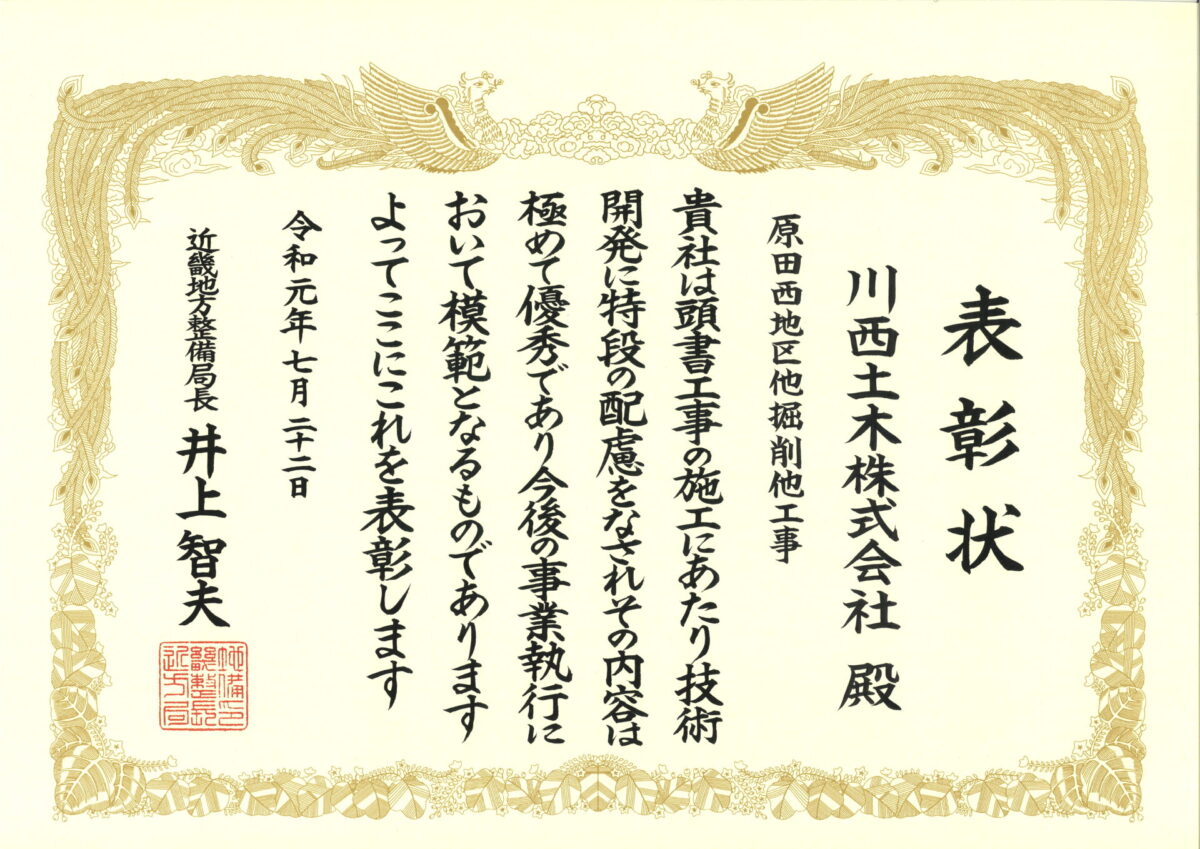 表彰状
川西土木株式会社 殿
原田西地区他掘削他工事
貴社は頭書工事の施工にあたり技術
開発に特段の配慮をなされその内容は
極めて優秀であり今後の事業執行に
おいて模範となるものであります
よってここにこれを表彰します
令和元年七月二十二日
近畿地方整備局長 井上智夫